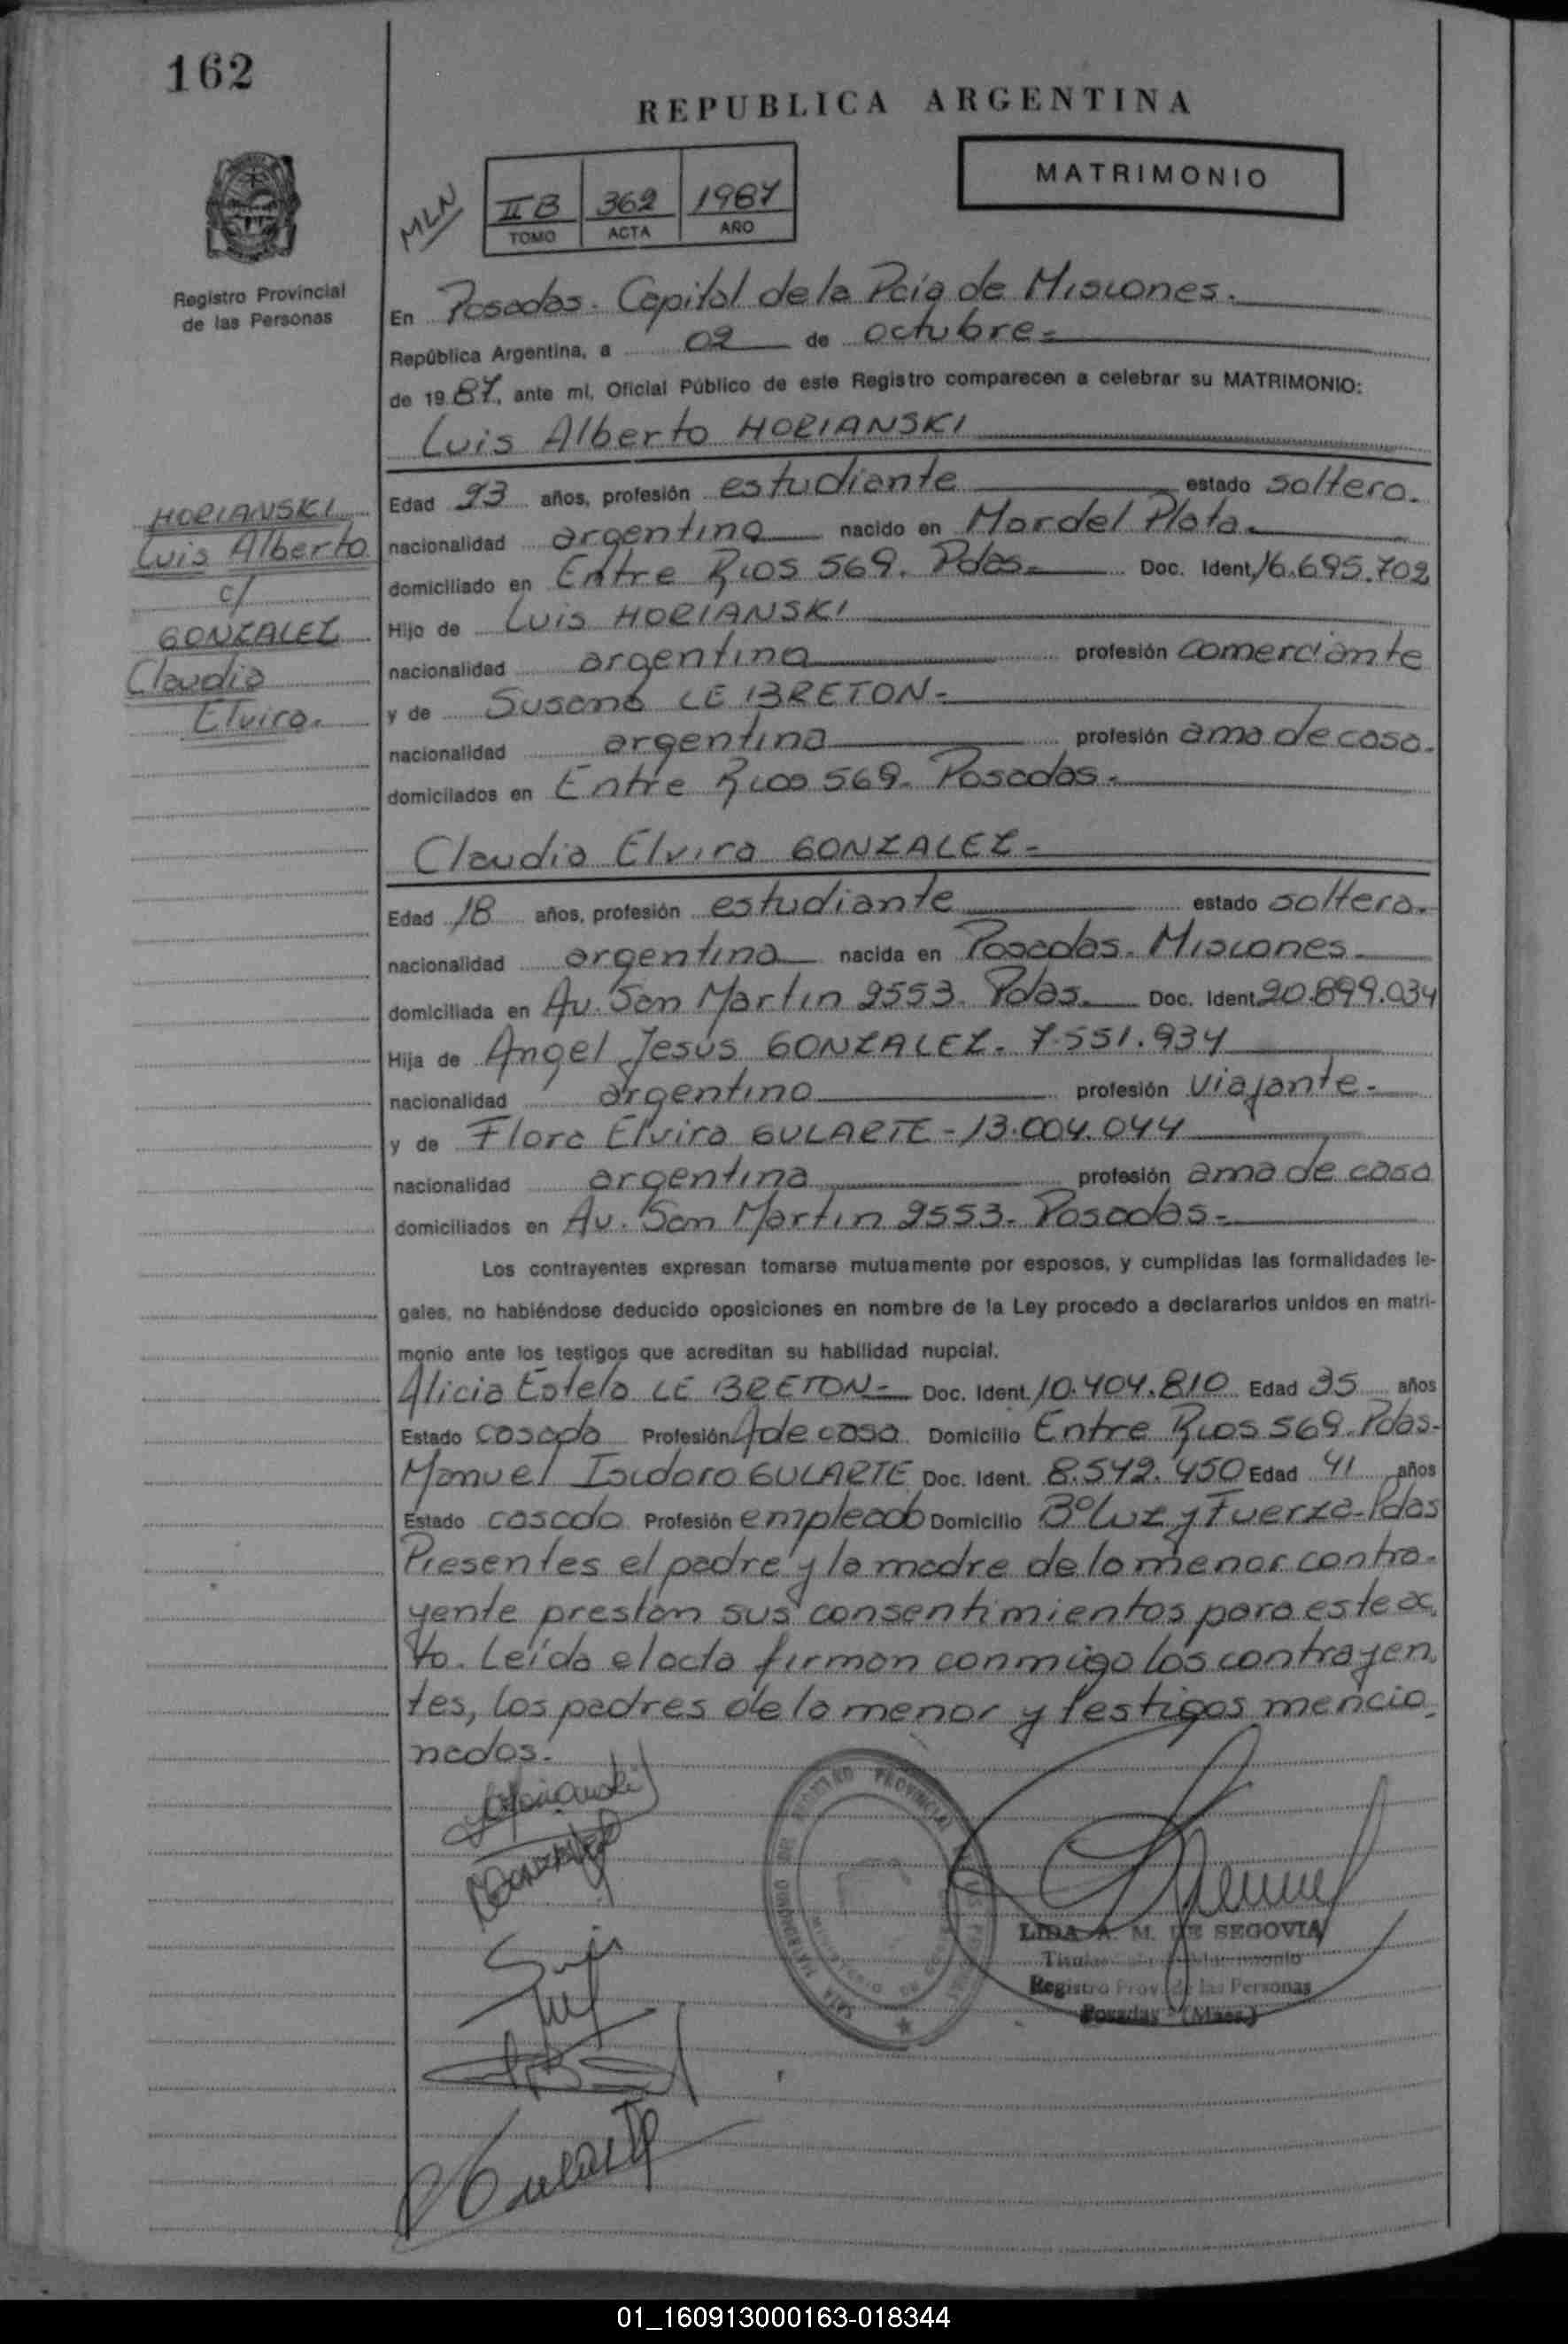 162
REPUBLICA ARGENTINA
MATRIMONIO
MLN
II B 362 1987
TOMO ACTA AÑO
Registro Provincial
de las Personas
En Posadas. Capital de la Pcia de Misiones.
República Argentina, a 02 de octubre
de 1987, ante mi, Oficial Público de este Registro comparecen a celebrar su MATRIMONIO:
Luis Alberto HORIANSKI
HORIANSKI
Luis Alberto
c/
GONZALEZ
Claudia
Elvira.
Edad 23 años, profesión estudiante estado soltero.
nacionalidad argentina nacido en Mar del Plata.
domiciliado en Entre Rios 569. Pdas. Doc. Ident. 16.695.702
Hijo de Luis HORIANSKI
nacionalidad argentina profesión comerciante
y de Susana LE BRETON.
nacionalidad argentina profesión ama de casa.
domicilados en Entre Rios 569. Posadas.
Claudia Elvira GONZALEZ
Edad 18 años, profesión estudiante estado soltera.
nacionalidad argentina nacida en Posadas. Misiones.
domiciliada en Av. San Martin 2553. Pdas. Doc. Ident. 20.899.034
Hija de Angel Jesús GONZALEZ. 7.551.934
nacionalidad argentino profesión viajante.
y de Flora Elvira GULARTE - 13.004.044
nacionalidad argentina profesión ama de casa
domiciliados en Av. San Martin 2553. Posadas.
Los contrayentes expresan tomarse mutuamente por esposos, y cumplidas las formalidades le-
gales, no habiéndose deducido oposiciones en nombre de la Ley procedo a declararlos unidos en matri-
monio ante los testigos que acreditan su habilidad nupcial.
Alicia Estela LE BRETON Doc. Ident. 10.404.810 Edad 35 años
Estado casada Profesión A de casa Domicilio Entre Rios 569. Pdas.
Manuel Isidoro GULARTE Doc. Ident. 8.542.450 Edad 41 años
Estado casado Profesión empleado Domicilio Bº Luz y Fuerza-Pdas
Presentes el padre y la madre de la menor contra-
yente prestan sus consentimientos para este ac.
to. Leída el acta firman conmigo los contrayen.
tes, los padres de la menor y testigos mencio.
nados.
LIDA A. M. DE SEGOVIA
Registro Prov. de las Personas
Posadas (Mnes.)
01_160913000163-018344